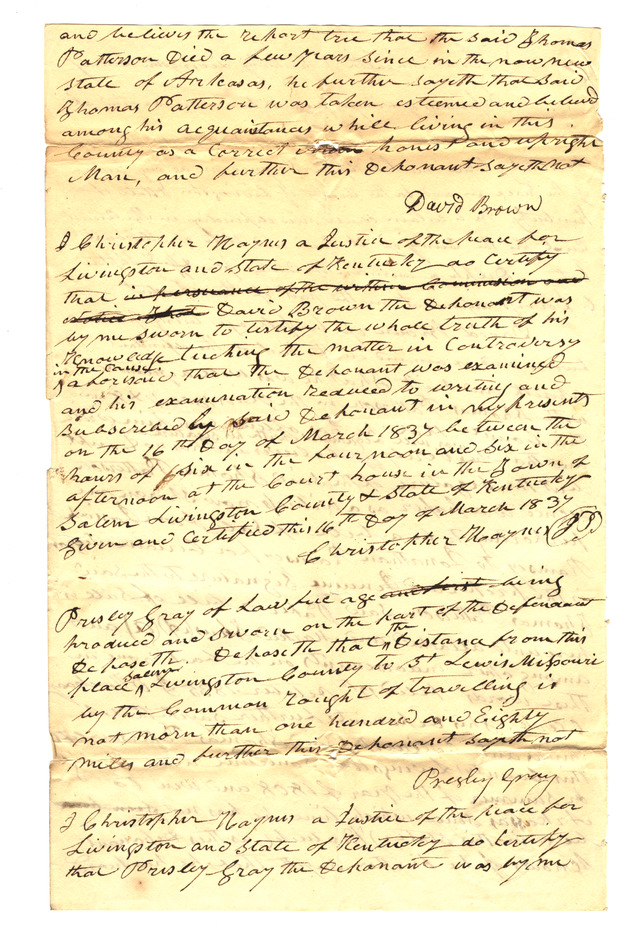 and believes the report true that the said Thomas
Patterson Died a few Years since in the now new
State of Arkcasas, he further sayeth that said
Thomas Patterson was taken esteemed and believd
among his acquaintances while living in this
County as a Correct honest and upright
Man, and further this Deponant Sayeth not
David Brown
I Christopher Haynes a Justice of the peace for
Livingston and State of Kentucky do Certify
that in persuance of the within Commission and
notice that David Brown the Deponant was
by me sworn to testify the whole truth of his
Knowledge tuching the matter in Controversy
in the Cause
aforisaid that the Deponant was examined
and his examination reduced to writing and
Subscribed by said Deponant in my presents
on the 16th Day of March 1837 between the
hours of six in the fournoon and six in the
afternoon at the Court house in the Town of
Salem Livingston County & State of Kentucky
Given and Certified this 16th Day of March 1837
Christopher Haynes JP
Presley Gray of Lawful age and first being
produced and sworn on the part of the Defendant
Deposeth. Deposeth that the Distance from this
place Salem Livingston County to St Lewis Missourie
by the Common rought of travelling is
not morn than one hundred and Eighty
miles and further this Deponant sayth not
Presley Gray
I Christopher Haynes a Justice of the peace for
Livingston and State of Kentucky do Certify
that Presley Gray the Deponant was by me